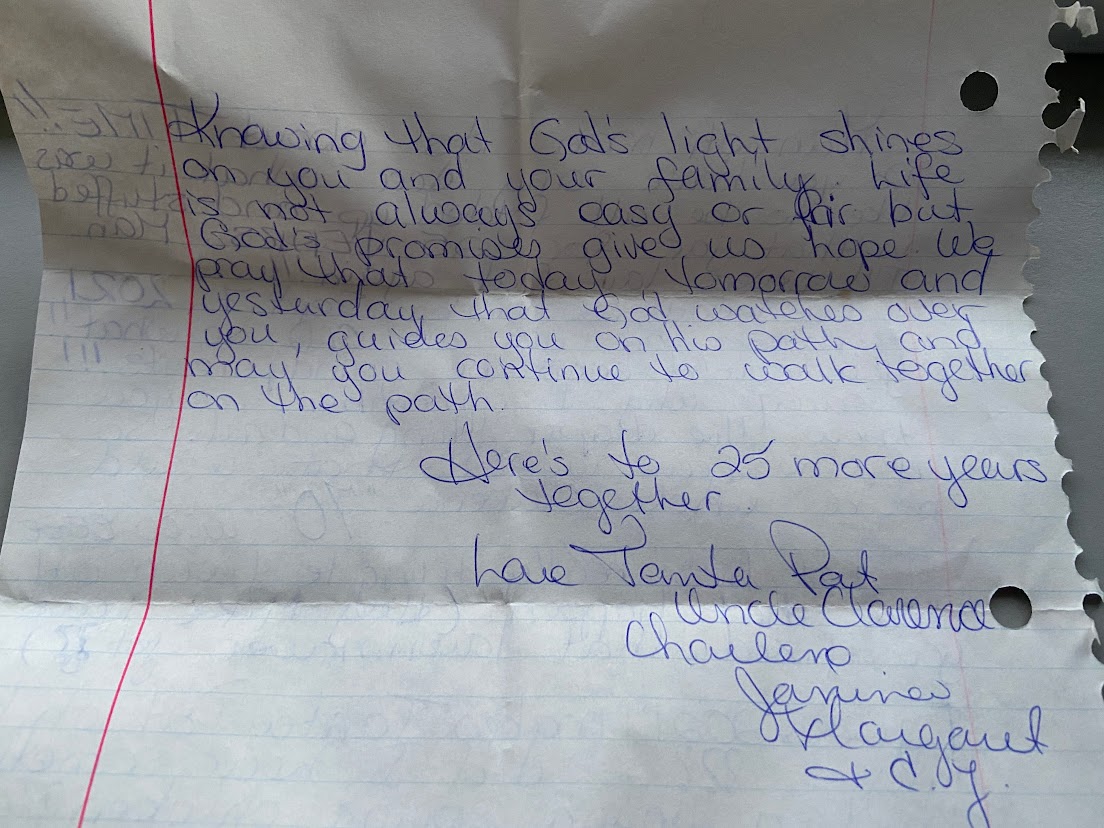 Knowing that God's light shines
on you and your family. Life
is not always easy or fair but
God's promises give us hope. We
pray that today, tomorrow and
yesterday that God watches over
you, guides you on his path and
may you continue to walk together
on the path.
Here's to 25 more years
together.
Love Tanta Pat
Uncle Clarence
Charlene
Janine
Margaret
& C.J.
2021